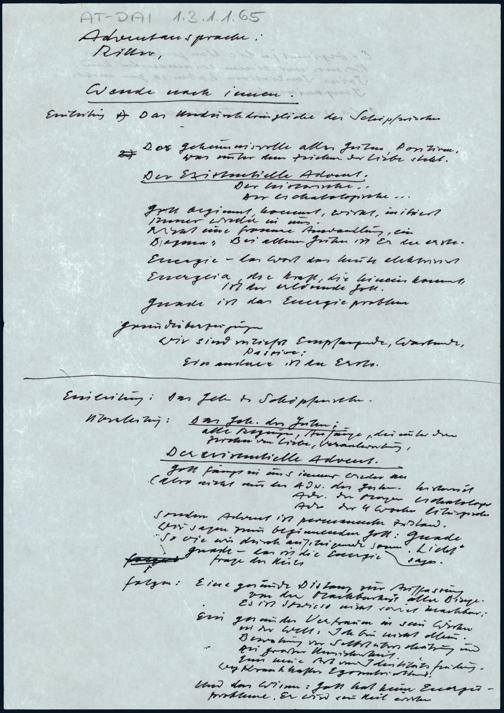 AT-DAI 1.3.1.1.65
Adventansprache:
Wende nach innen.
Einleitung Das Undurchdringliche des Schöpferischen
Das Geheimnisvolle alles Guten, Positiven,
was unter dem Zeichen der Liebe steht.
Der Existentielle Advent.
Der historische..
Der eschatologische...
Gott beginnt, kommt, wirkt, initiiert
immer wieder in uns.
Nicht eine fromme Anwandlung, ein
Dogma: Bei allem Guten ist Er der erste.
Energie – das Wort das heute elektrisiert
Energeia, die Kraft, die hineinkommt
ist der erlösende Gott.
Gnade ist das Energieproblem
Grundüberzeugung
Wir sind zuerst Empfangende, Wartende,
Passive:
Ein anderer ist der Erste.
Einleitung: Das Geh. des Schöpferischen.
Überleitung: Das Geh. des Guten:
alle Anfänge, die unter dem
Zeichen von Liebe, Verantwortung,
Der existentielle Advent.
Gott fängt in uns immer wieder an
(also nicht nur der Adv. der Zeiten historisch
Adv. des Morgen eschatologisch
Adv. der 4 Wochen liturgisch
sondern Advent ist permanenter Zustand.
Wir sagen zum beginnenden Gott: Gnade
"So wie wir durch aufsteigende Sonne "Licht"
sagen.
Gnade – das ist die Energie
Frage des Heils
Folgen: Eine gesunde Distanz zur Auffassung
von der Machbarkeit aller Dinge.
Es ist sowieso nicht soviel machbar.
Ein gesundes Vertrauen in sein Wirken
in der Welt: Ich bin nicht allein.
Bewahrung vor Selbstüberschätzung und
bei großer Unsicherheit.
Zum eine Art von Identitätsfindung
weg krankhafter Egozentrierung.
Und das Wissen: Gott hat keine Energie-
probleme. Er wird sein Heil wirken